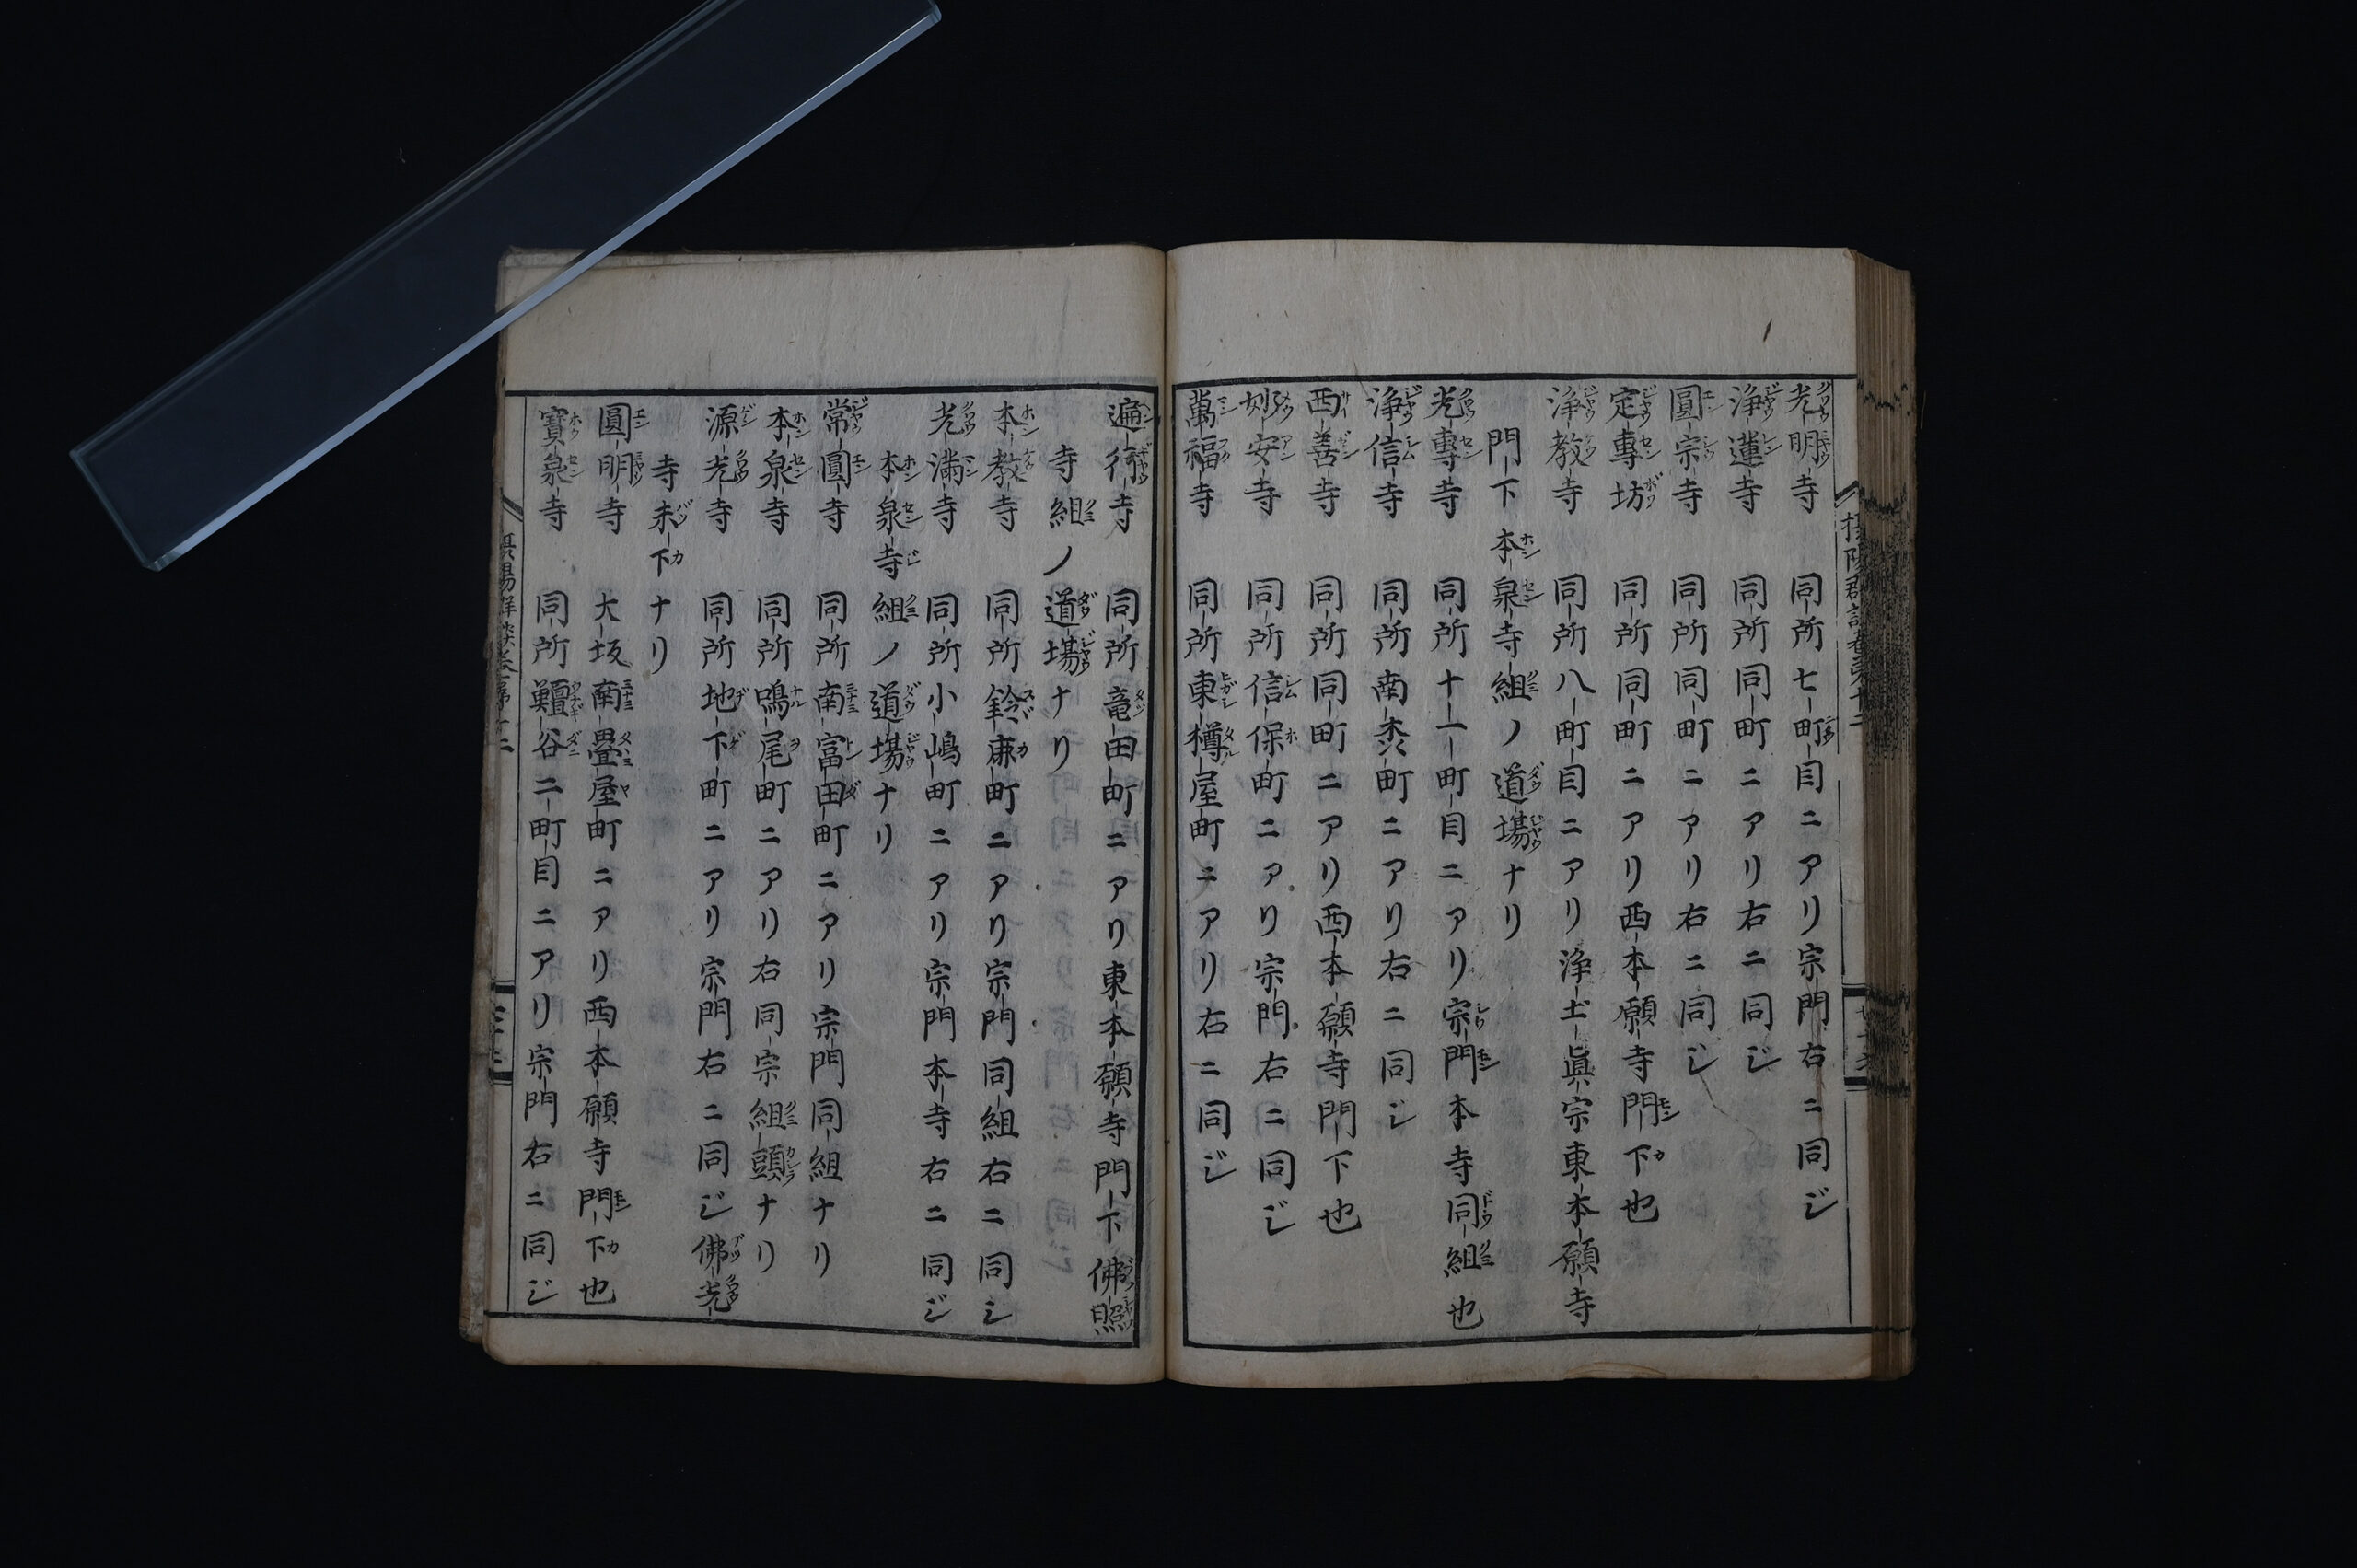 光明寺 同所七町目ニアリ宗門右ニ同ジ
浄蓮寺 同所同町ニアリ右ニ同ジ
圓宗寺 同所同町ニアリ右ニ同ジ
定專坊 同所同町ニアリ西本願寺門下也
浄教寺 同所八町目ニアリ浄土眞宗東本願寺
門下本泉寺組ノ道場ナリ
光專寺 同所十一町目ニアリ宗門本寺同組也
浄信寺 同所南 町ニアリ右ニ同ジ
西善寺 同所同町ニアリ西本願寺門下也
妙安寺 同所信保町ニアリ宗門右ニ同ジ
萬福寺 同所東樽屋町ニアリ右ニ同ジ
遍行寺 同所竜田町ニアリ東本願寺門下佛照
寺組ノ道場ナリ
本教寺 同所鈴鹿町ニアリ宗門同組右ニ同シ
光満寺 同所小嶋町ニアリ宗門本寺右ニ同ジ
本泉寺組ノ道場ナリ
常圓寺 同所南富田町ニアリ宗門同組ナリ
本泉寺 同所鳴尾町ニアリ右同宗組頭ナリ
源光寺 同所地下町ニアリ宗門右ニ同ジ佛光
寺末下ナリ
圓明寺 大坂南畳屋町ニアリ西本願寺門下也
寳泉寺 同所鰻谷二町目ニアリ宗門右ニ同ジ